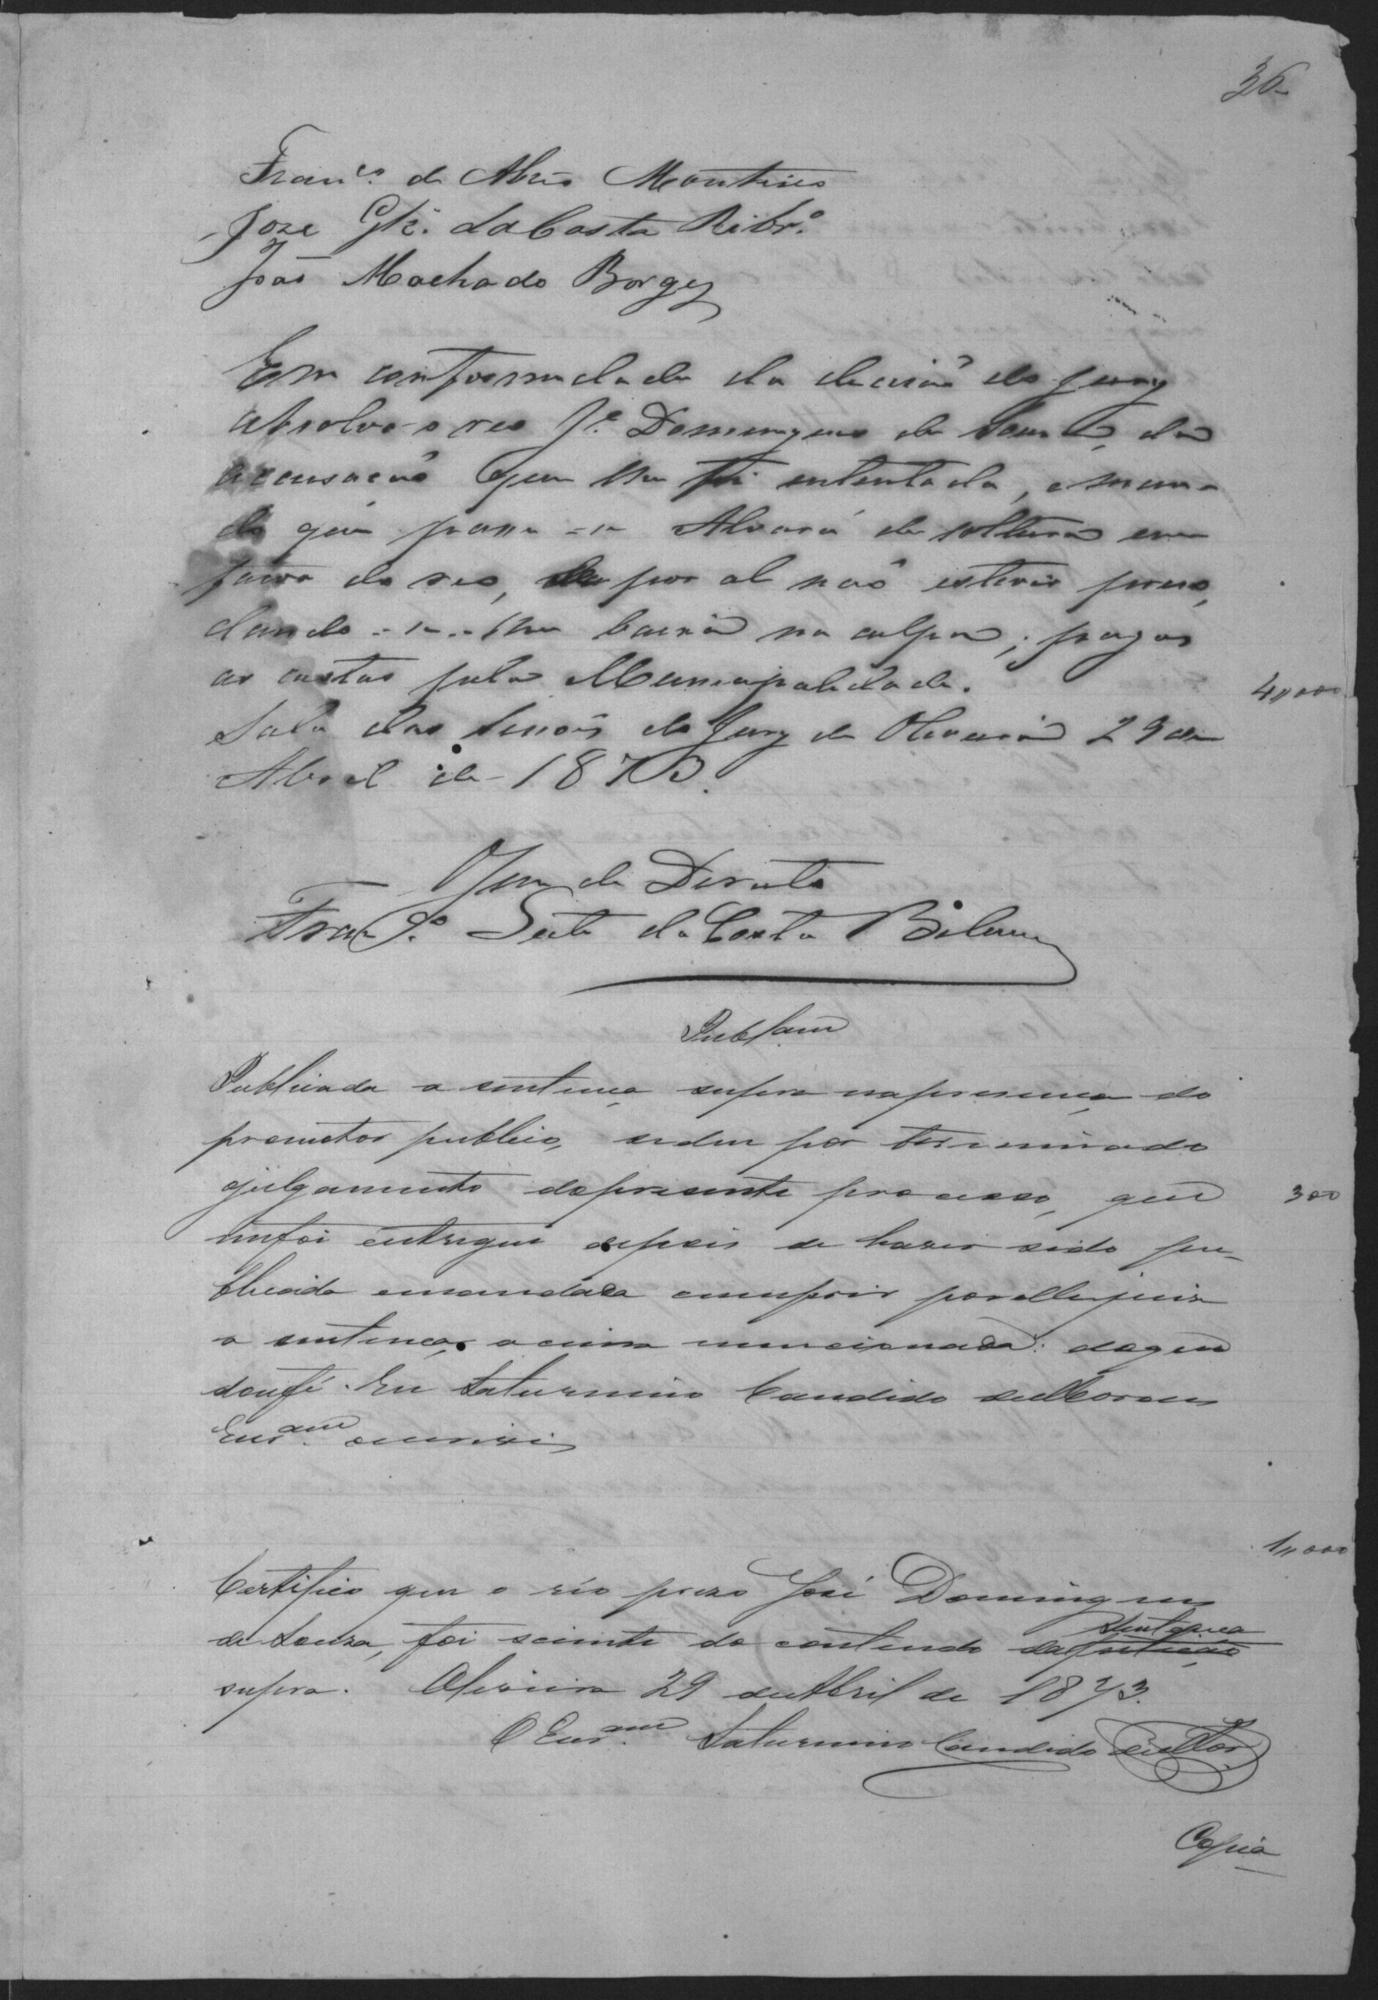 36
Fran.co de Abreu Monteiro
Joze Glz. da Costa Ribr.o
João Machado Borges
Em conformidade da decisão do Jury
absolvo o reo J.e Domingues de Souza, da
accusacão que lhe foi intentada, e man-
do que passe-se Alvará de soltura em
favor do reo, se por al não estiver preso,
dando-se-lhe baixa na culpa; pagas
as custas pela Municipalidade.
4,,000
Sala das Sessões do Jury de Oliveira 29 de
Abril de 1873.
O Juiz de Direito
Fran.co Leite da Costa Belem
Publ.am
Publicada a sentença supra na presença do
promotor publico, se deu por terminado
o julgamento do presente processo, que
300
me foi entregue depois de haver sido pu-
blicada e mandada cumprir por elle juiz
a sentença acima mencionada: do que
dou fé. Eu Saturnino Candido de Moraes
Escr.am escrevi
1,,000
Certifico que o réo prezo José Domingues
de Souza, foi sciente do contendo da petição sentença
supra. Oliveira 29 de Abril de 1873.
O Escr.am Saturnino Candido de Mor.
Copia